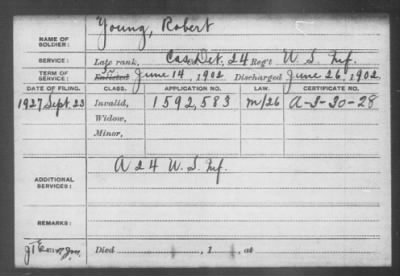 NAME OF SOLDIER: Young, Robert
SERVICE: Late rank, Cas. Det, 24 Reg't U. S. Inf.
TERM OF SERVICE: Enlisted June 14, 1902 Discharged June 26, 1902.
DATE OF FILING. CLASS. APPLICATION NO. LAW. CERTIFICATE NO.
1927 Sept. 23 Invalid, 1592,583 m/26 A-3-30-28
Widow,
Minor,
ADDITIONAL SERVICES: A 24 U. S. Inf.
REMARKS:
Died , 1 , at